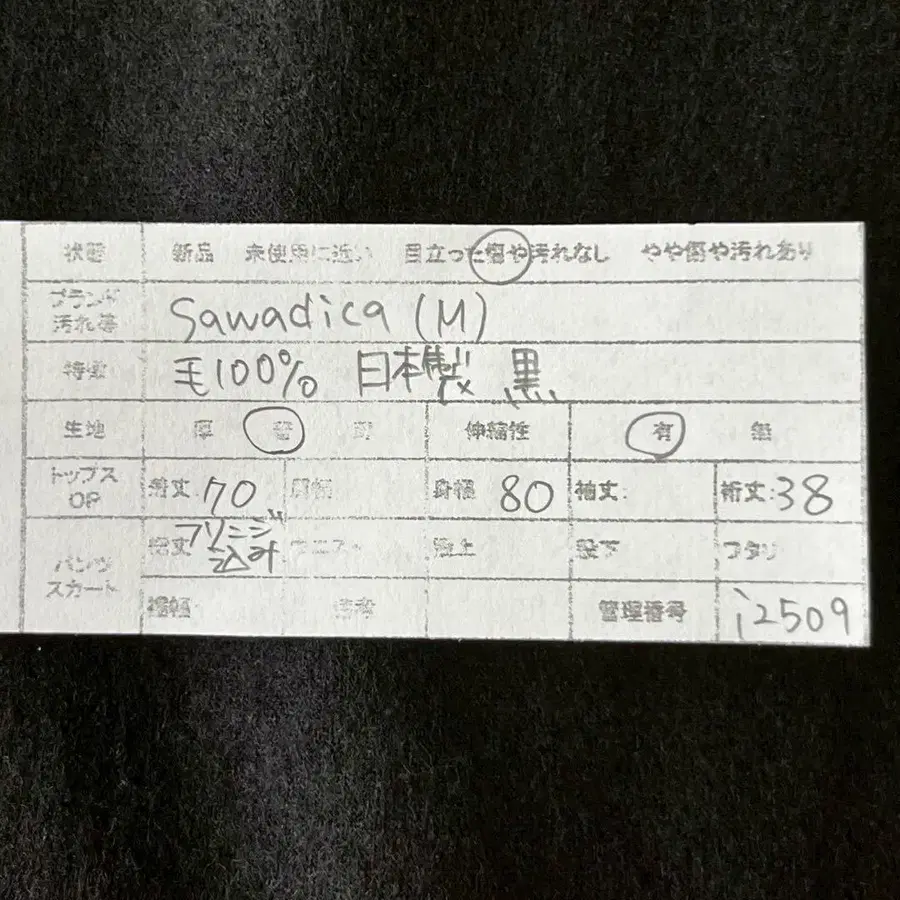 状態 新品 未使用に近い 目立った傷や汚れなし やや傷や汚れあり
ブランド
汚れ等 Sawadica (M)
特徴 毛100% 日本製 黒
生地 厚 普 伸縮性 有 無
トップス
OP 着丈: 70 肩幅 身幅 80 袖丈: 裄丈: 38
フリンジ
込み
パンツ
スカート 総丈 ウエスト 股上 股下 ワタリ
裾幅 備考 管理番号 i2509